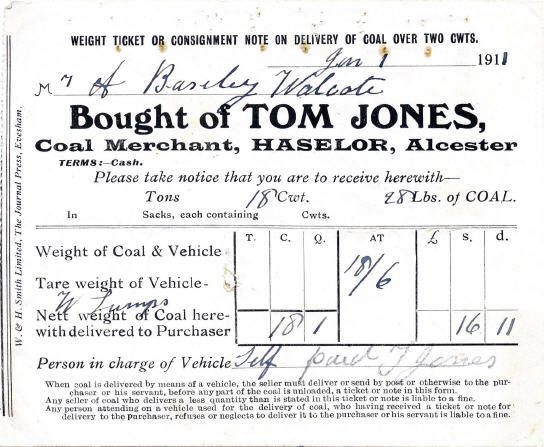 WEIGHT TICKET OR CONSIGNMENT NOTE ON DELIVERY OF COAL OVER TWO CWTS.
Jan 1 1911
Mr A Baseley Walcote
Bought of TOM JONES,
Coal Merchant, HASELOR, Alcester
TERMS:—Cash.
Please take notice that you are to receive herewith—
Tons 18 Cwt. 28 Lbs. of COAL.
In Sacks, each containing Cwts.
T. C. Q. AT £ s. d.
Weight of Coal & Vehicle
18/6
Tare weight of Vehicle-
W Lumps
Nett weight of Coal here-
with delivered to Purchaser 18 1 16 11
Person in charge of Vehicle Self paid T Jones
When coal is delivered by means of a vehicle, the seller must deliver or send by post or otherwise to the pur-
chaser or his servant, before any part of the coal is unloaded, a ticket or note in this form.
Any seller of coal who delivers a less quantity than is stated in this ticket or note is liable to a fine.
Any person attending on a vehicle used for the delivery of coal, who having received a ticket or note for
delivery to the purchaser, refuses or neglects to deliver it to the purchaser or his servant is liable to a fine.
W. & H. Smith Limited, The Journal Press, Evesham.